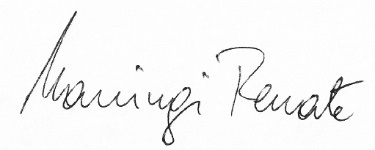 Maningi Renate